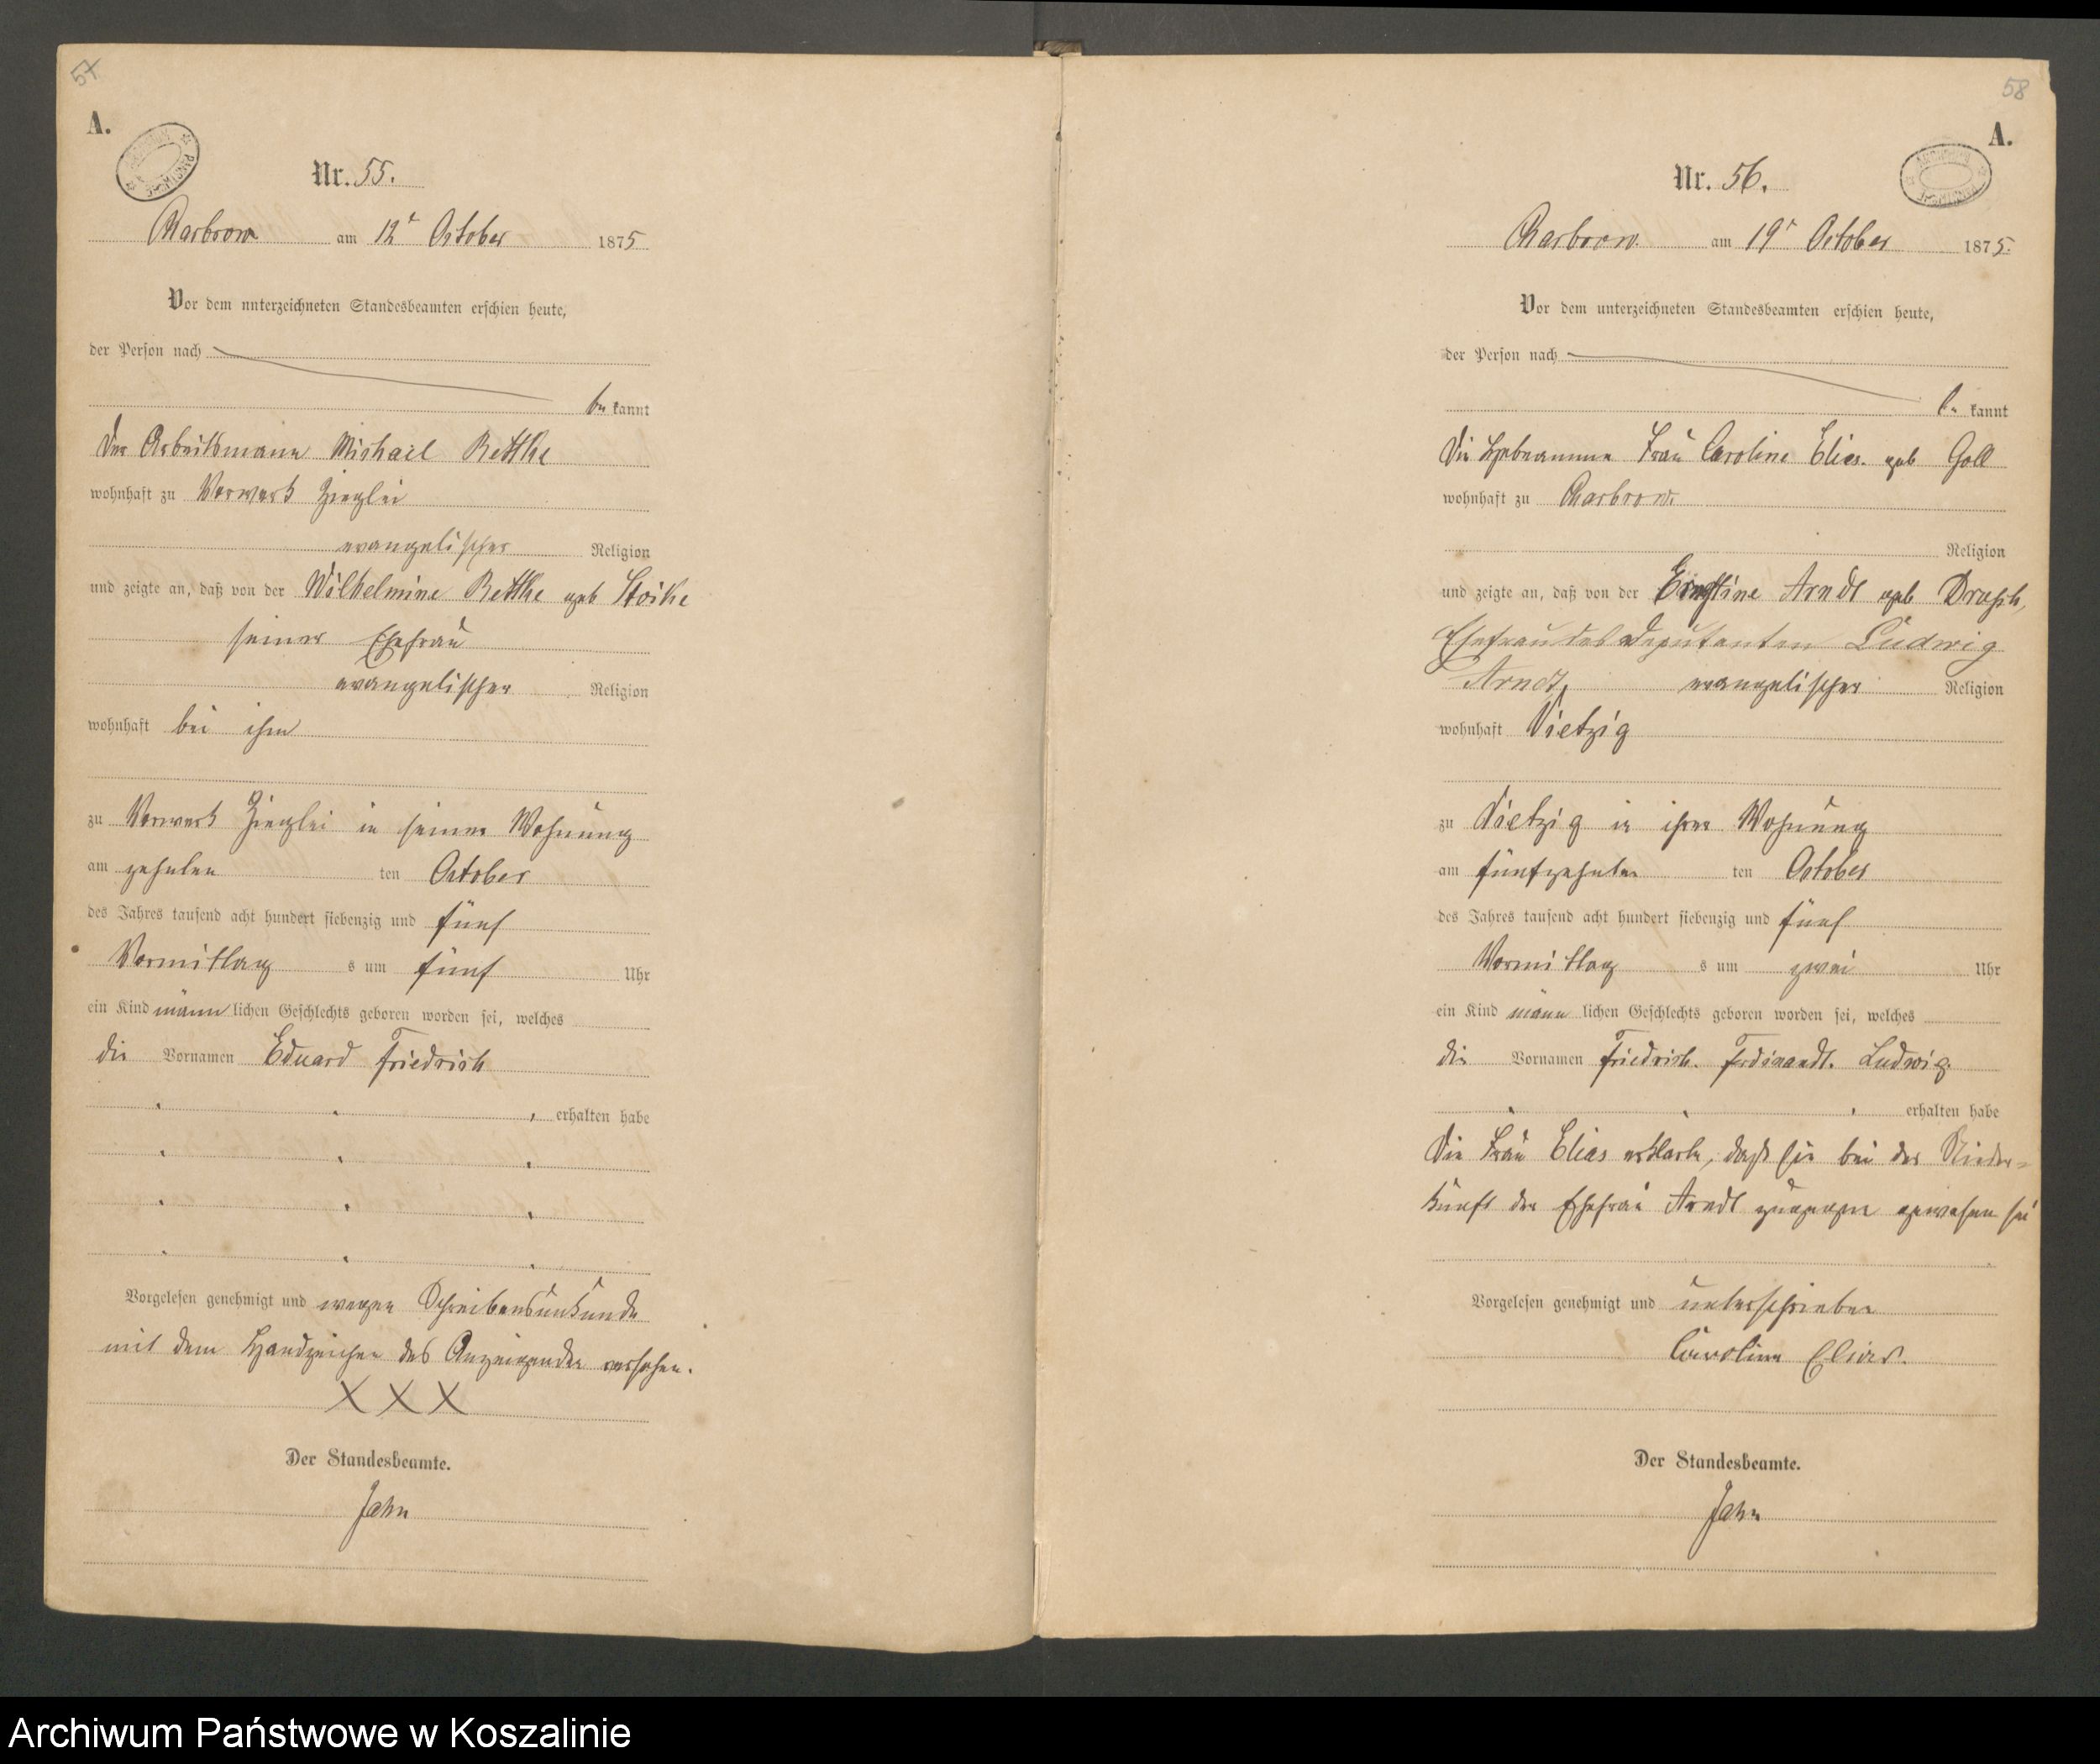 57
A.
Nr. 55.
Charbrow am 12t October 1875
Vor dem unterzeichneten Standesbeamten erschien heute,
der Person nach
be kannt
Der Arbeitsmann Michael Rettke
wohnhaft zu Vorwerk Zieglei
evangelischer Religion
und zeigte an, daß von der Wilhelmine Rettke geb Stoike
seiner Ehefrau
evangelischer Religion
wohnhaft bei ihm
zu Vorwerk Zieglei in seiner Wohnung
am zehnten ten October
des Jahres tausend acht hundert siebenzig und fünf
Vormittag s um fünf Uhr
ein Kind männ lichen Geschlechts geboren worden sei, welches
die Vornamen Eduard Friedrich
erhalten habe
Vorgelesen genehmigt und wegen Schreibensunkunde
mit dem Handzeichen des Anzeigenden versehen.
XXX
Der Standesbeamte.
Jahn
58
A.
Nr. 56.
Charbrow. am 19t October 1875.
Vor dem unterzeichneten Standesbeamten erschien heute,
der Person nach
be kannt
Die Hebeamme Frau Caroline Elias. geb Goll
wohnhaft zu Charbrow.
Religion
und zeigte an, daß von der Ernstine Arndt geb
Ehefrau des Deputanten Ludwig
Arndt, evangelischer Religion
wohnhaft Vietzig
zu Vietzig in ihrer Wohnung
am fünfzehnten ten October
des Jahres tausend acht hundert siebenzig und fünf
Vormittag s um zwei Uhr
ein Kind männ lichen Geschlechts geboren worden sei, welches
die Vornamen Friedrich. Ferdinandt. Ludwig.
erhalten habe
Die Frau Elias erklärte, daß sie bei der Nieder=
kunft der Ehefrau Arndt zugegen gewesen sei
Vorgelesen genehmigt und unterschrieben
Caroline Elias.
Der Standesbeamte.
Jahn
Archiwum Państwowe w Koszalinie